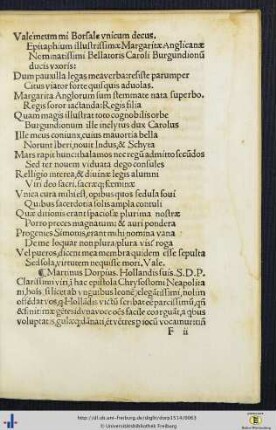 Vale meum mi Borsale vnicum decus.
Epitaphium illustrissimæ Margaritæ Anglicanæ
Neminatissimi Bellatoris Caroli Burgundionū
ducis vxoris:
Dum pauxilla legas mea verba resiste parumper
Citus viator forte quisquis aduolas.
Margarita Anglorum sum stemmate nata superbo.
Regis soror iactanda: Regis filia
Quam magis illustrat toto cognobilis orbe
Burgundionum ille inclytus dux Carolus
Ille meus coniunx, cuius mauortia bella
Norunt Iberi, nouit Indus, & Schyta
Mars rapit hunc: thalamos nec regū admitto secūdos
Sed ter nouem viduata dego consules
Relligio interea, & diuinæ legis alumni
Viri deo sacri, sacræq; feminæ
Vnica cura mihi est, opibus quos sedula foui
Quibus sacerdotia solis ampla contuli
Quæ ditionis erant spaciosæ plurima nostræ
Porro preces magnatum & auri pondera
Progenies Simonis, erant mihi nomina vana
De me loquar non plura, plura vis? roga
Vel pueros, dicent mea membra quidem esse sepulta
Sed sola, virtutem nequisse mori. Vale.
¶ Martinus Dorpius. Hollandis suis. S. D. P.
Clarissimi viri, ī hac epistola Chrysostomi Neapolita
ni,
F ii
http://dl.ub.uni-freiburg.de/diglit/dorp1514/0063
© Universitätsbibliothek Freiburg